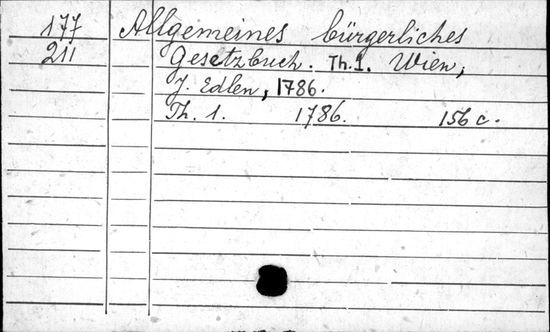 177 Allgemeines bürgerliches
211 Gesetzbuch. Th. 1. Wien,
J. Edlen, 1786.
Th. 1. 1786. 156 c.